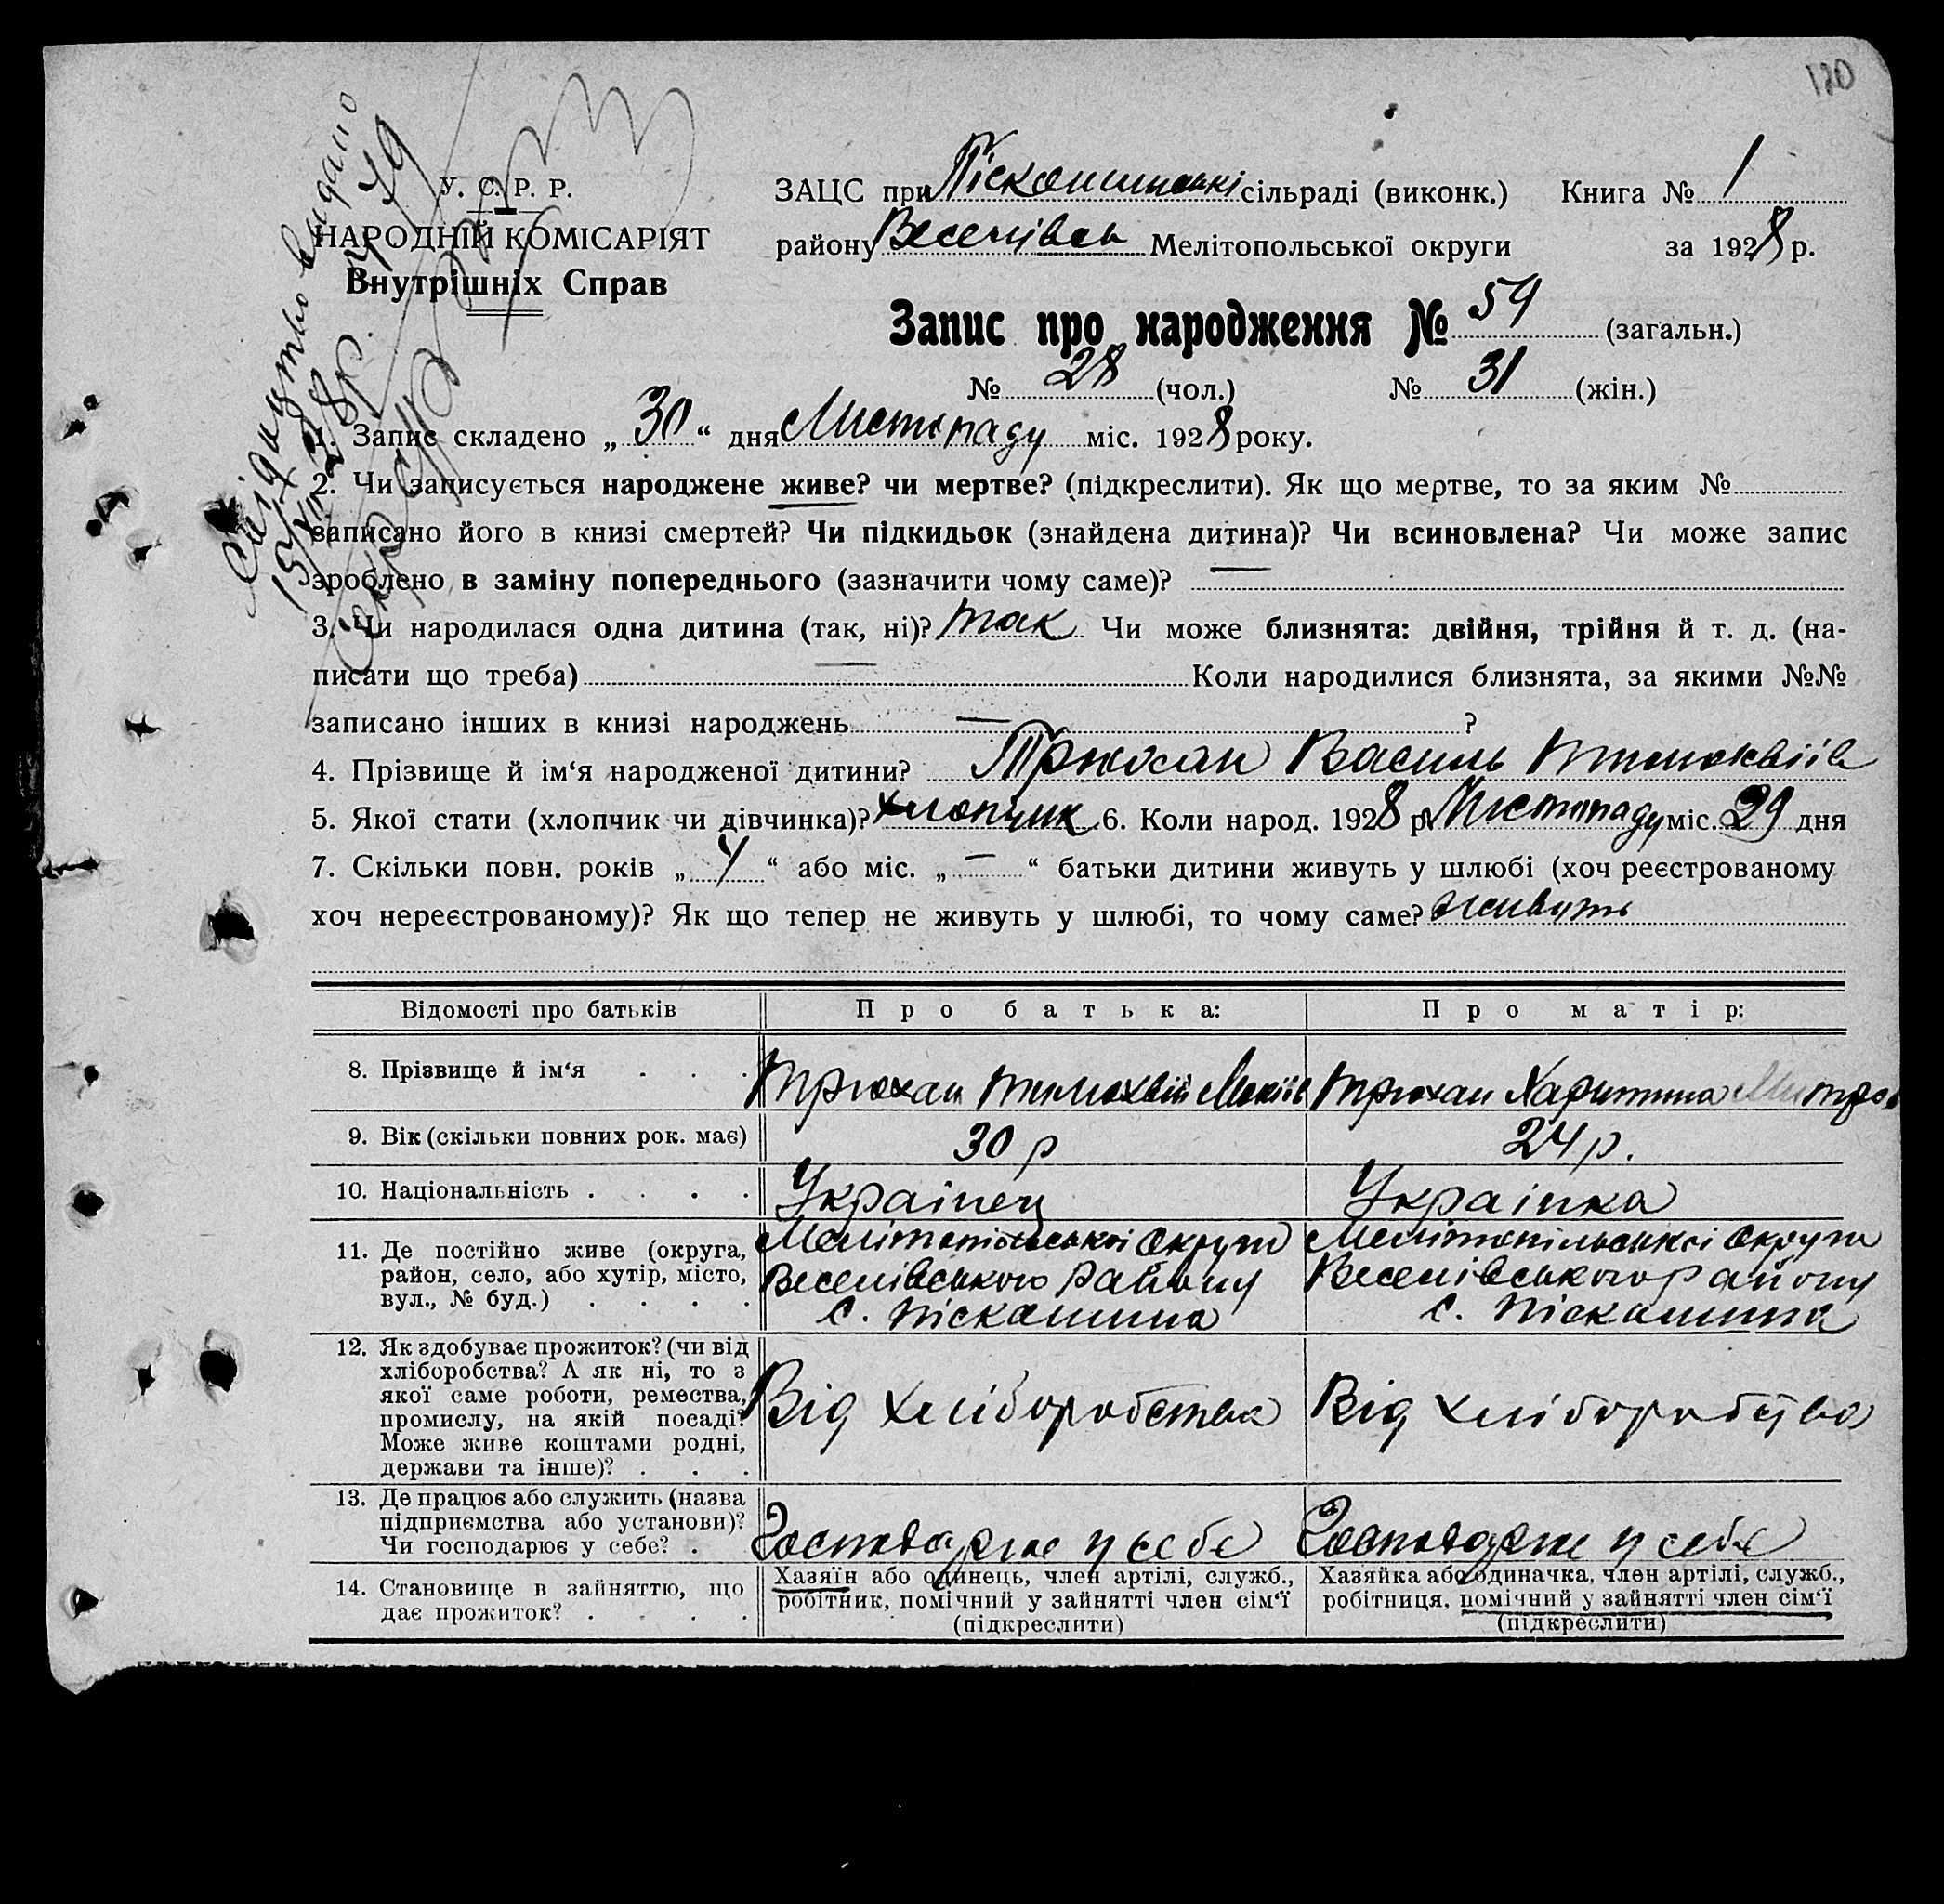 120
Свідоцтво видано
15/XII 28р. № 49
У. С. Р. Р.
НАРОДНІЙ КОМІСАРІЯТ
Внутрішніх Справ
ЗАЦС при Піскошинські сільраді (виконк.) Книга № 1
району Веселівськ Мелітопольської округи за 1928 р.
Запис про народження № 59 (загальн.)
№ 28 (чол.) № 31 (жін.)
1. Запис складено „ 30 “ дня Листопаду міс. 1928 року.
2. Чи записується народжене живе? чи мертве? (підкреслити). Як що мертве, то за яким №
записано його в книзі смертей? Чи підкидьок (знайдена дитина)? Чи всиновлена? Чи може запис
зроблено в заміну попереднього (зазначити чому саме)? —
3. Чи народилася одна дитина (так, ні)? так Чи може близнята: двійня, трійня й т. д. (на-
писати що треба) — Коли народилися близнята, за якими №№
записано інших в книзі народжень — ?
4. Прізвище й ім‘я народженої дитини? Трюхан Василь Тимохвіїв
5. Якої стати (хлопчик чи дівчинка)? хлопчик 6. Коли народ. 1928 р. Листопаду міс. 29 дня
7. Скільки повн. років „ 4 “ або міс. „ — “ батьки дитини живуть у шлюбі (хоч реєстрованому
хоч нереєстрованому)? Як що тепер не живуть у шлюбі, то чому саме? живуть
Відомості про батьків Про батька: Про матір:
8. Прізвище й ім‘я . . . Трюхан Тимохвій Трюхан Харитина Митров
9. Вік (скільки повних рок. має) 30 р 24 р.
10. Національність . . . . Українец Українка
11. Де постійно живе (округа, Мелітопільської Округи Мелітопільської Округи
район, село, або хутір, місто, Веселівського Району Веселівського району
вул., № буд.) . . . . с. Піскошина с. Піскошина
12. Як здобуває прожиток? (чи від
хліборобства? А як ні, то з
якої саме роботи, ремества, Від хліборобства Від хліборобства
промислу, на якій посаді?
Може живе коштами родні,
держави та інше)? . . .
13. Де працює або служить (назва
підприємства або установи)? Господарює у себе Господарює у себе
Чи господарює у себе? .
14. Становище в зайняттю, що Хазяїн або одинець, член артілі, служб., Хазяйка або одиначка, член артілі, служб.,
дає прожиток? . . . . робітник, помічний у зайнятті член сім‘ї робітниця, помічний у зайнятті член сім‘ї
(підкреслити) (підкреслити)